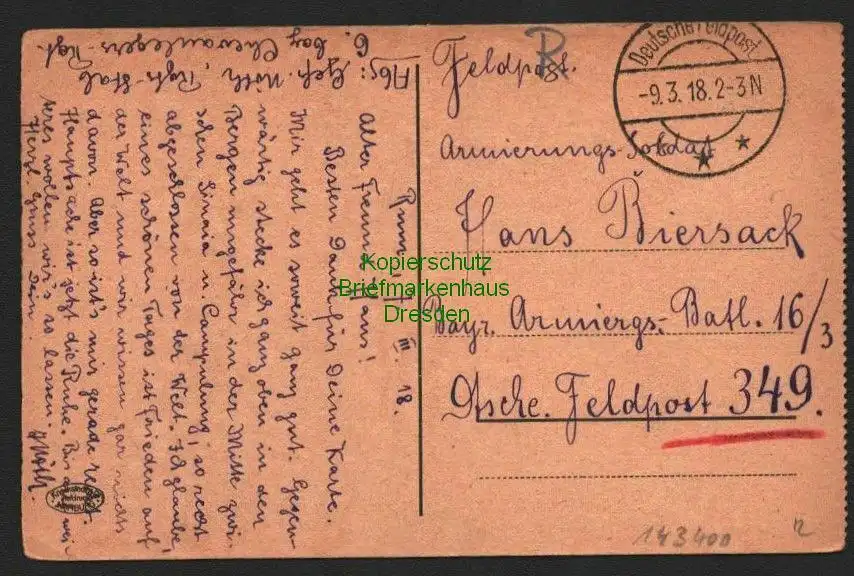 Abs: Gefr. Nöth, Rgts-Stab
6. bay. Chevaulegers-Rgt.
Rum., III. 18.
Alter Freund Hans!
Besten Dank für Deine Karte.
Mir geht es soweit ganz gut. Gegen-
wärtig stecke ich ganz oben in den
Bergen ungefähr in der Mitte zwi-
schen Sinaia u. Campulung, so recht
abgeschlossen von der Welt. Ich glaube
eines schönen Tages ist Frieden auf
der Welt und wir wissen gar nichts
davon. Aber so ist's mir gerade recht.
Hauptsache ist jetzt die Ruhe. Bis auf wei-
teres wollen wir's so lassen.
Herzl. Gruss Dein
Nöth
Feldpost.
R
Deutsche Feldpost
-9.3.18.2-3N
Armierungs-Soldat
Hans Biersack
Bayr. Armiergs.-Batl. 16/3
Dtsche. Feldpost 349.
143400
n
Kopierschutz
Briefmarkenhaus
Dresden